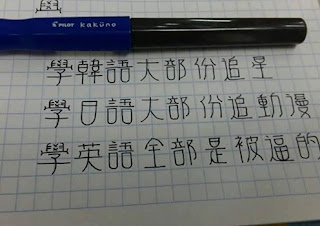 學
PILOT kakuno
學韓語大部份追星
學日語大部份追動漫
學英語全部是被逼的